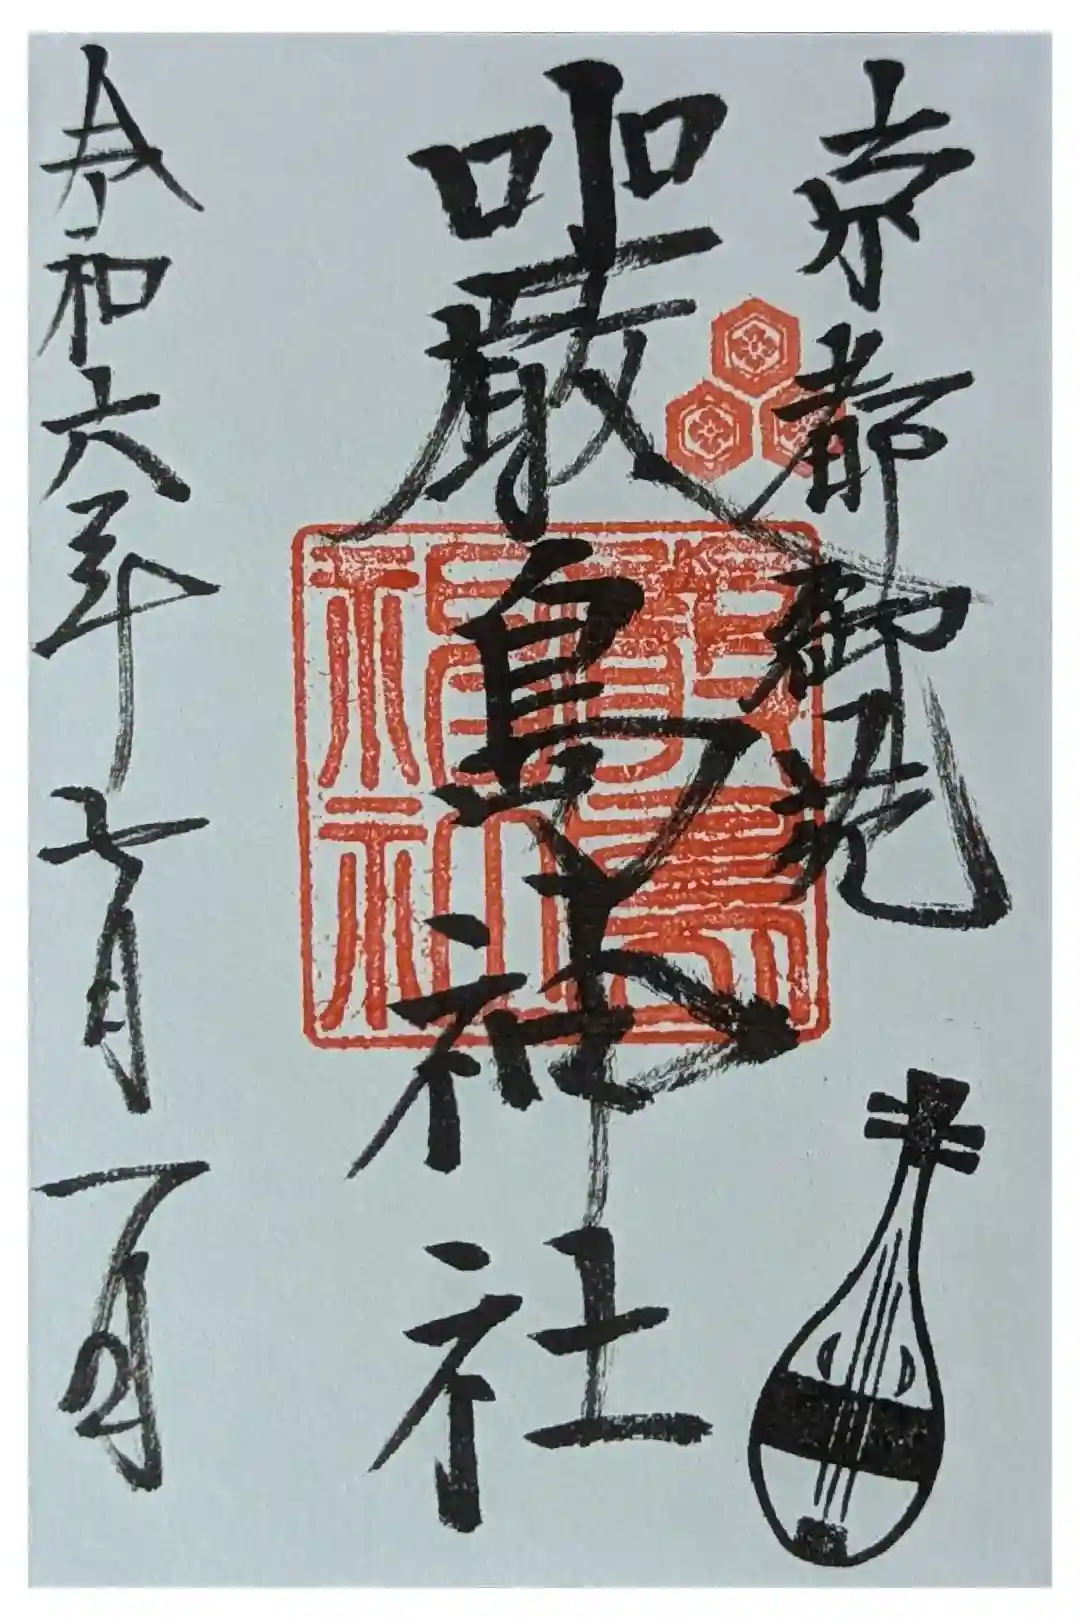 京都御苑
嚴島神社
令和六年七月一日
嚴島
神社